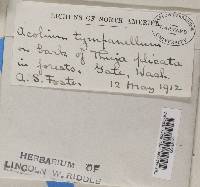 LICHENS OF NORTH AMERICA
Acolium tympanellum
on bark of Thuja plicata
in forests, Gate, Wash.
A. S. Foster 12 May 1912
HERBARIUM OF
LINCOLN W. RIDDLE